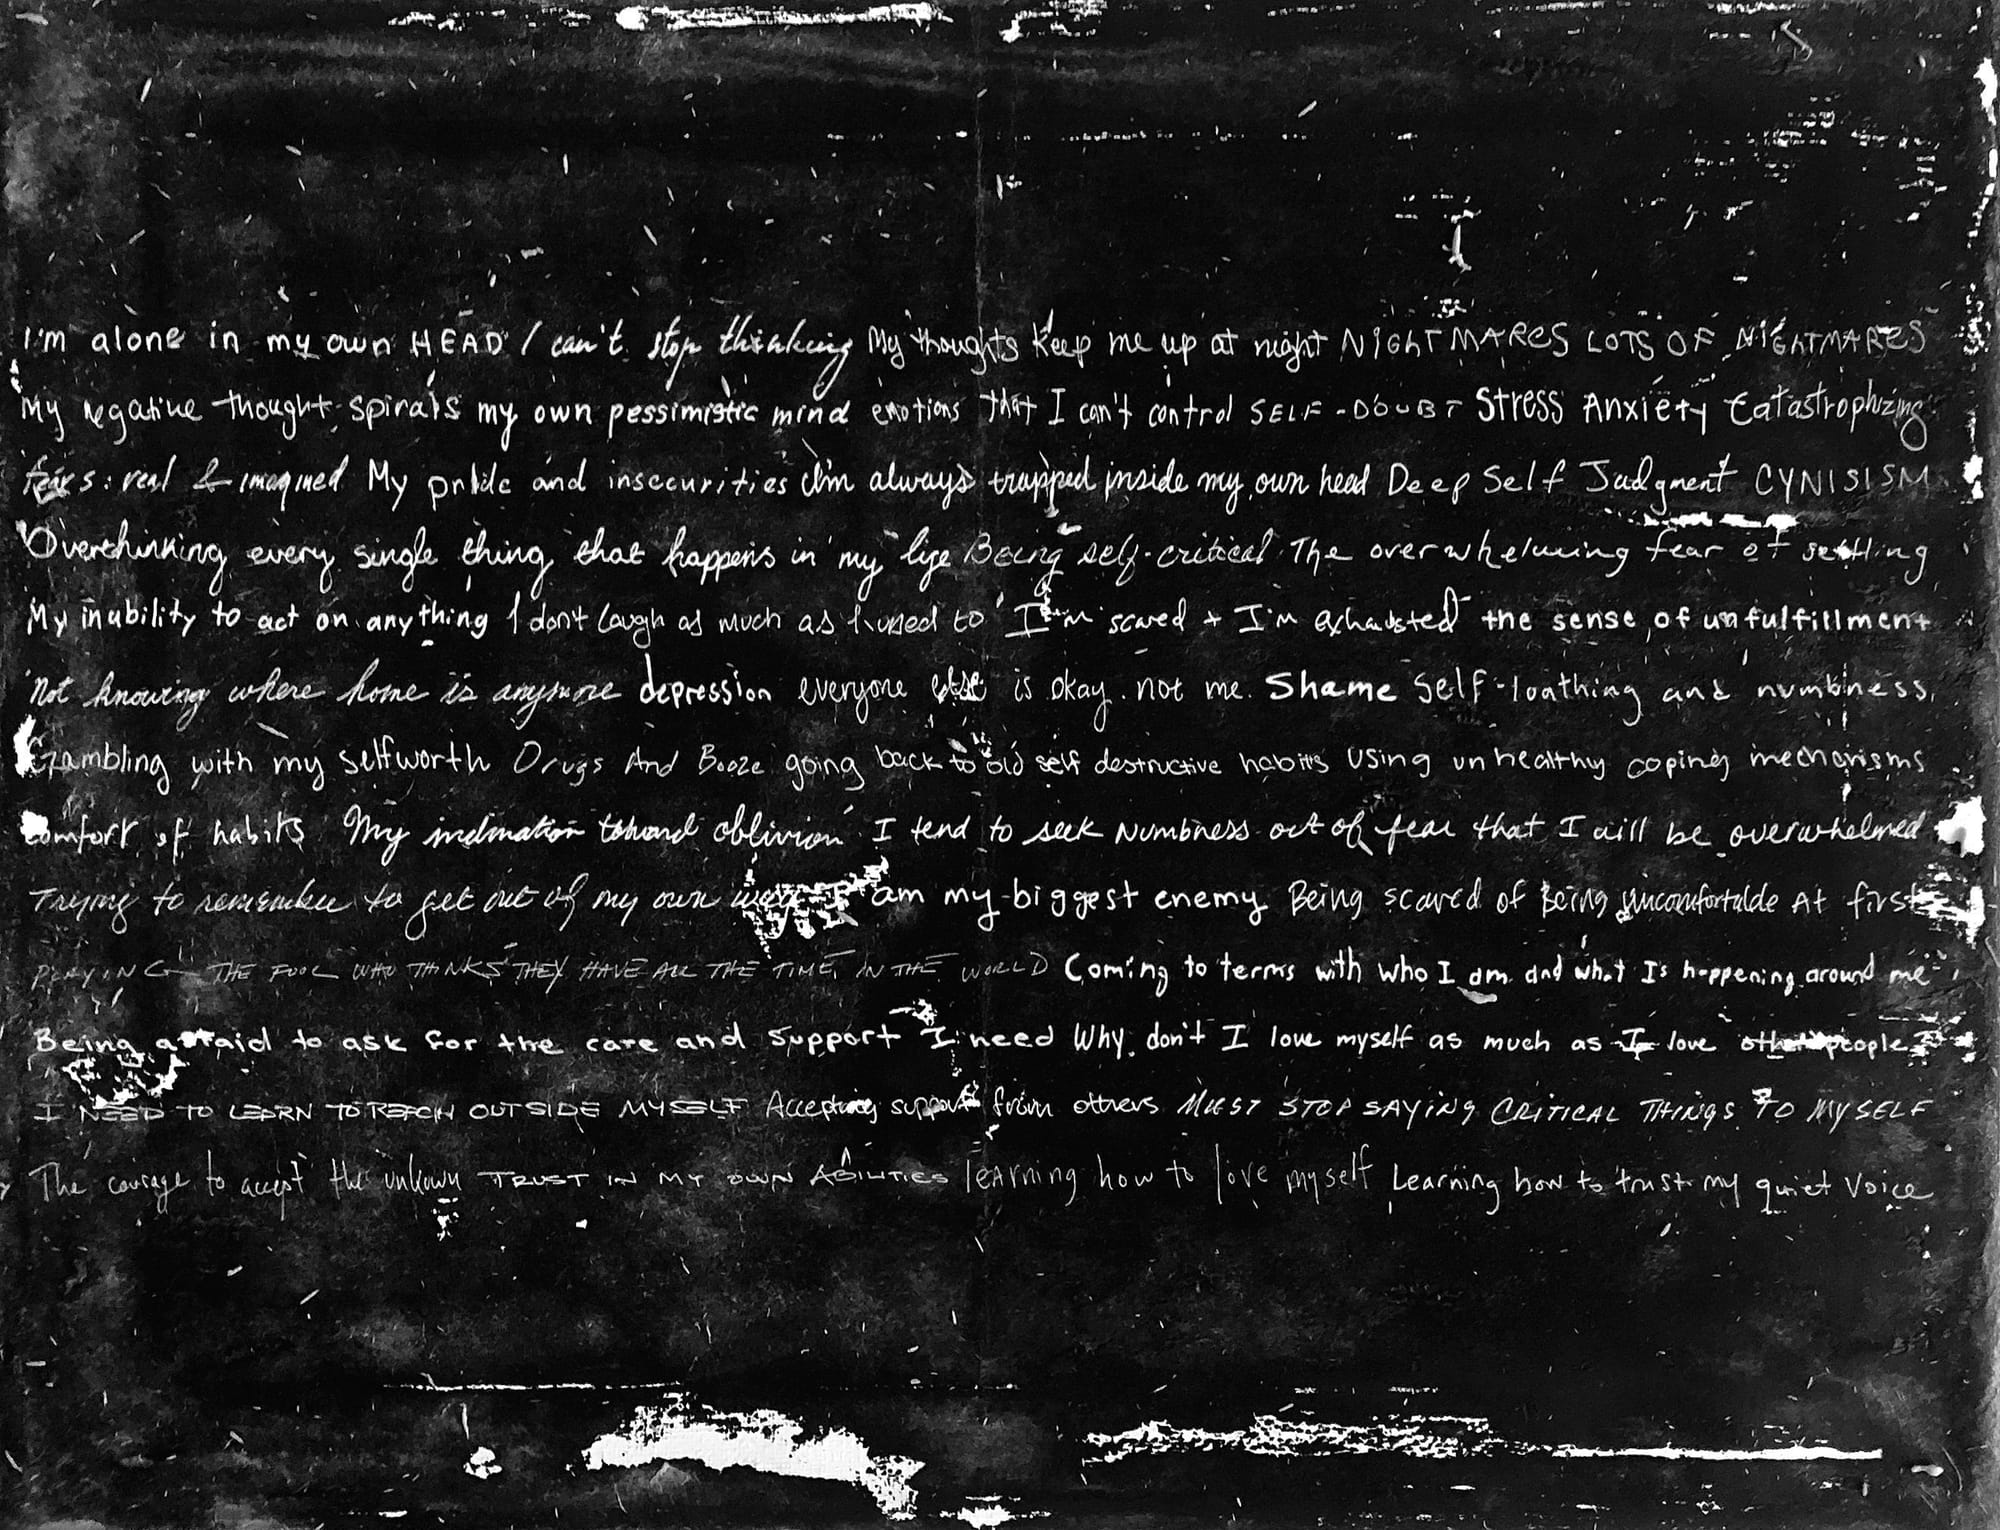 I'm alone in my own HEAD I can't stop thinking My thoughts keep me up at night NIGHTMARES LOTS OF NIGHTMARES
My negative thought spirals my own pessimistic mind emotions that I can't control SELF-DOUBT Stress Anxiety Catastrophizing
fears: real & imagined My pride and insecurities I'm always trapped inside my own head Deep Self Judgment CYNISISM
Overthinking every single thing that happens in my life Being self-critical The overwhelming fear of settling
My inability to act on anything I don't laugh as much as I used to I'm scared + I'm exhausted the sense of unfulfillment
Not knowing where home is anymore depression everyone else is okay. not me. Shame Self-loathing and numbness
Gambling with my selfworth Drugs And Booze going back to old self destructive habits Using unhealthy coping mechanisms
comfort of habits My inclination toward oblivion I tend to seek numbness out of fear that I will be overwhelmed
Trying to remember to get out of my own way I am my biggest enemy Being scared of Being uncomfortable At first
PLAYING THE FOOL WHO THINKS THEY HAVE ALL THE TIME IN THE WORLD Coming to terms with who I am and what Is happening around me
Being afraid to ask for the care and support I need Why don't I love myself as much as I love other people
I NEED TO LEARN TO OUTSIDE MYSELF Accepting support from others MUST STOP SAYING CRITICAL THINGS TO MYSELF
The courage to accept the unknown TRUST IN MY OWN ABILITIES learning how to love myself Learning how to trust my quiet voice